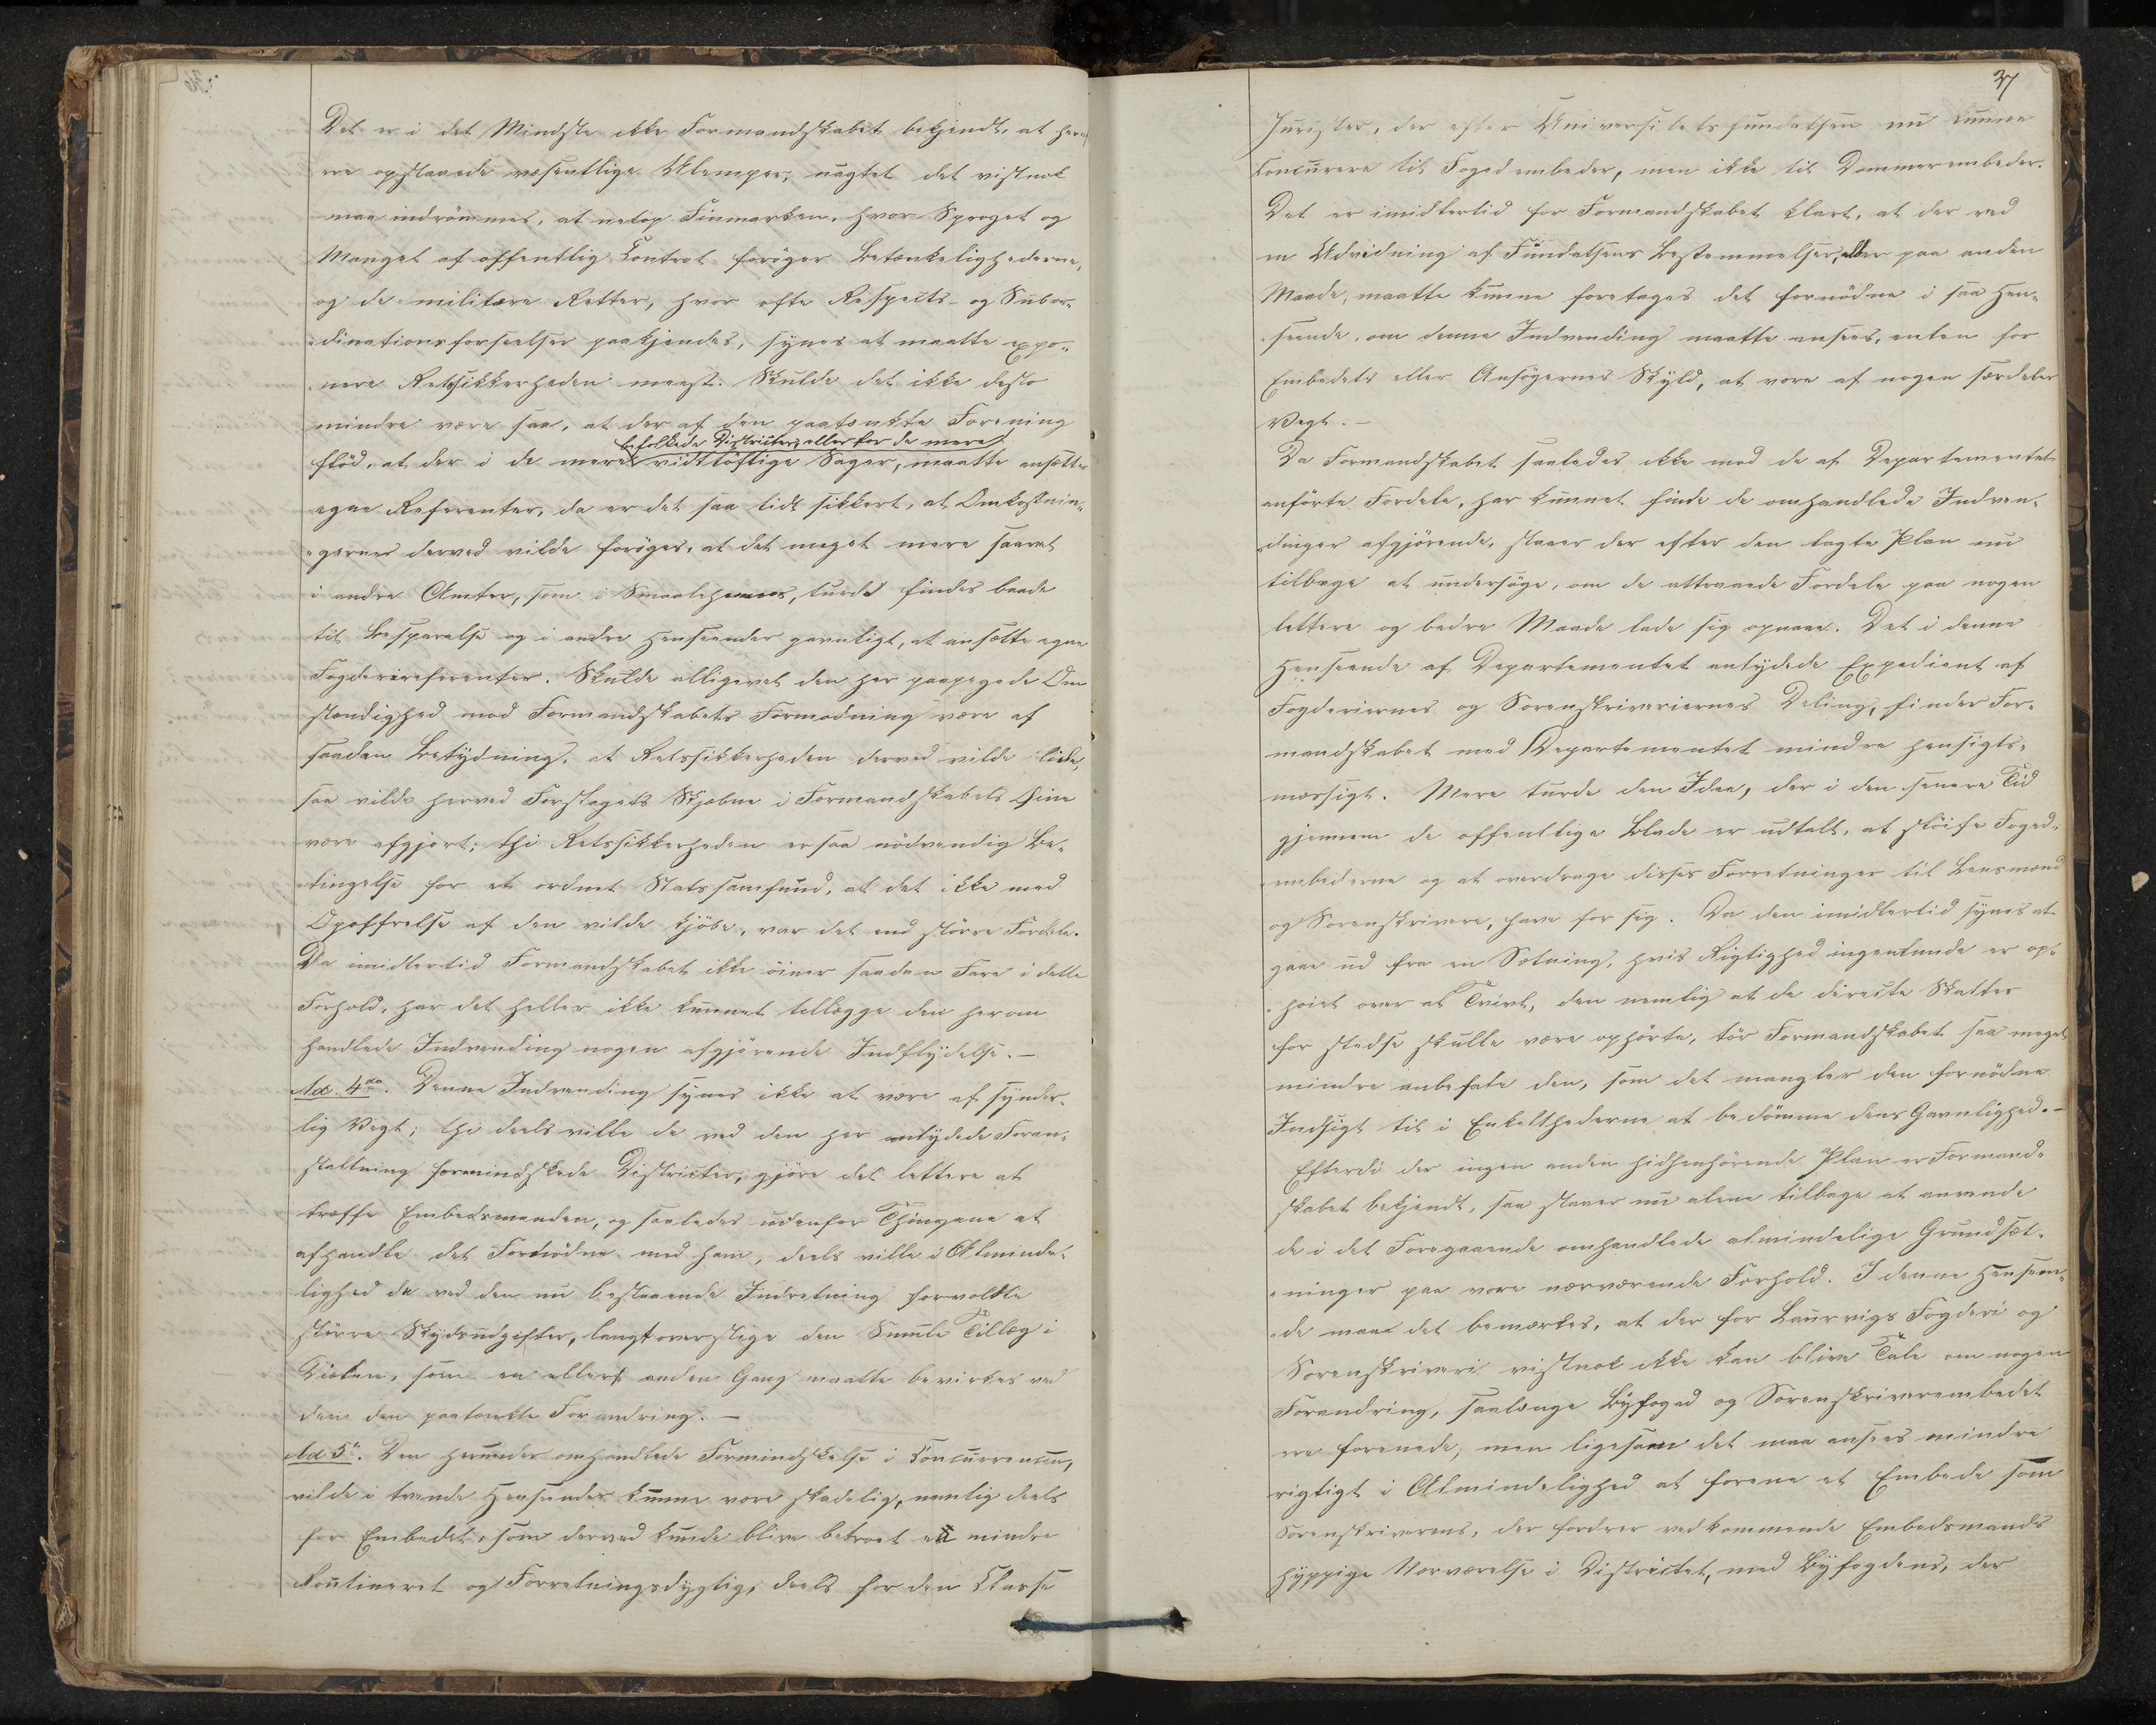 Det er i det Mindste ikke Formandskabet bekjendt, at her
ere opstaaede væsentlige Ulemper, uagtet det vistnok
maa indrömmes, at netop Finmarken, hvor Sproget og
Mangel af offentlig Control foröger Betænkelighederne,
og de militære Retter, hvor ofte Respects- og Subor-
dinationsforseelser paakjendes, synes at maatte expo-
nere Retssikkerheden meest. Skulde det ikke desto
mindre være saa, at der af den paatænkte Forening
befolkede Districter, eller for de mere
flöd, at der i de mere vidtlöftige Sager, maatte ansættes
egne Referenter, da er det saa lidt sikkert, at Omkostnin-
gernes derved vilde foröges, at det meget mere saavel
i andre Amter, som i Smaalehnenes, turde findes baade
til Besparelse og i andre Henseender gavnligt, at ansætte egne
Fogderireferenter. Skulde alligevel den her paapegede Om
stændighed mod Formandskabets Formodning være af
saadan Betydning, at Retssikkerheden derved vilde lide,
saa vilde herved Forslagets Skjæbne i Formandskabets Öine
være afgjort; thi Retssikkerheden er saa nödvendig Be-
tingelse for et ordnet Statssamfund, at det ikke med
Opoffrelse af den vilde kjöbe, var det end större Fordele.
Da imidlertid Formandskabet ikke öiner saadan Fare i dette
Forhold, har det heller ikke kunnet tillægge den herom
handlede Indvending nogen afgjörende Indflydelse. -
Ad. 4do. Denne Indvending synes ikke at være af synder-
lig Vegt; thi deels ville de ved den her antydede Foran-
staltning formindskede Districter, gjöre det lettere at
træffe Embedsmanden, og saaledes udenfor Thingene at
afhandle det Fornödne med ham, deels ville i Almindel-
lighed de ved den nu bestaaende Indretning forvoldte
större Skydsudgifter, langt overstige den Smule Tillæg i
Diæten, som en eller anden Gang maatte bevirkes ved
dem den paatænkte Forandring. -
Ad 5to. Den herunder omhandlede Formindskelse i Concurrencen,
vilde i tvende Henseender kunne være skadelig, nemlig deels
for Embedet, som derved kunde blive betroet en mindre
Routineret og Forretningsdygtig, deels for den Classe
37
Jurister, der efter Universitetsfundatsen nu kunne
concurere til Fogedembeder, men ikke til Dommerembeder.
Det er imidlertid for Formandskabet klart, at der ved
en Udvidning af Fundatsens Bestemmelser, eller paa anden
Maade, maatte kunne foretages det fornödne i saa Hen-
seende, om denne Indvending maatte ansees, enten for
Embedets eller Ansögernes Skyld, at være af nogen særdeles
Vegt. -
Da Formandskabet saaledes ikke mod de af Departementet
anförte Fordele, har kunnet finde de omhandlede Indven-
dinger afgjörende, staaer der efter den lagte Plan nu
tilbage at undersöge, om de attraaede Fordele paa nogen
lettere og bedre Maade lade sig opnaae. Det i denne
Henseende af Departementet antydede Expedient af
Fogderiernes og Sorenskriveriernes Deling, finder For-
mandskabet med Departementet mindre hensigts-
mæssigt. Mere turde den Idee, der i den senere Tid
gjennem de offentlige Blade er udtalt, at slöife Foged-
embederne og at overdrage disses Forretninger til Lensmænd
og Sorenskrivere, have for sig. Da den imidlertid synes at
gaae ud fra en Sætning, hvis Rigtighed ingenlunde er op-
höiet over al Tvivl, den nemlig at de directe Skatter
for stedse skulle være ophörte, tör Formandskabet saa meget
mindre anbefale den, som det mangler den fornödne
Indsigt til i Enkelthederne at bedömme dens Gavnlighed. -
Efterdi der ingen anden hidhenhörende Plan er Formand-
skabet bekjendt, saa staaer nu alene tilbage at anvende
de i det Foregaaende omhandlede almindelige Grundsæt-
ninger paa vore nærværende Forhold. I denne Henseen-
de maa det bemærkes, at der for Laurvigs Fogderi og
Sorenskriveri vistnok ikke kan blive Tale om nogen
Forandring, saalænge Byfoged og Sorenskriverembedet
ere forenede; men ligesom det maa ansees mindre
rigtigt i Almindelighed at forene et Embede som
Sorenskriverens, der fordrer vedkommende Embedsmands
hyppige Nærværelse i Districtet, med Byfogdens, der